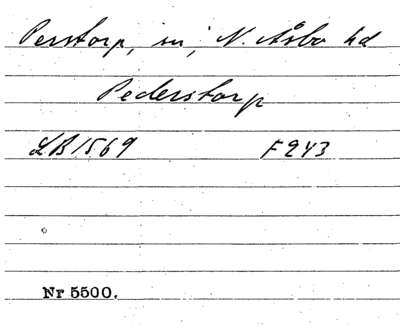 Perstorp, sn, N. Åsbo hd
Pederstorp
LB 1569 F 243
Nr 5500.